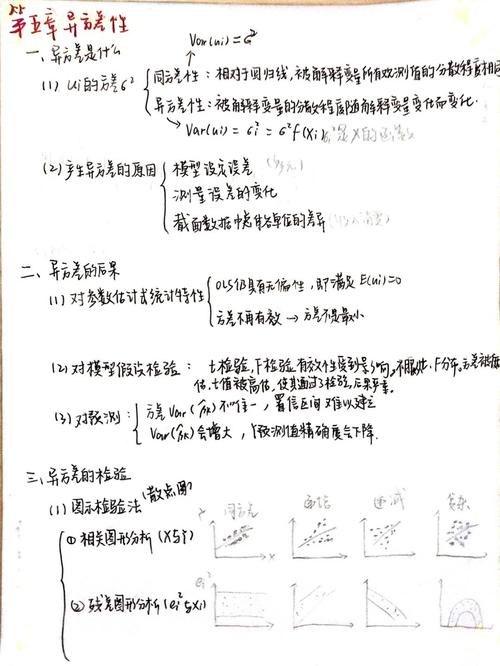 第五章 异方差性
Var(ui)=σ²
一、异方差是什么
(1) ui的方差σ² 同方差性：相对于回归线，被解释变量所有观测值的分散程度相同
异方差性：被解释变量的分散程度随解释变量变化而变化.
Var(ui)=σi²=σ²f(Xi) σi²是X的函数
(2)产生异方差的原因 模型设定误差
测量误差的变化
截面数据中总体各单位的差异
二、异方差的后果
(1) 对参数估计式统计特性 OLS仍具有无偏性，即满足E(ui)=0
方差不再有效→方差不是最小
(2) 对模型假设检验： t检验，F检验有效性受到影响，不服从t、F分布。方差被低
估，t值被高估，使其通过了检验，后果严重.
(3) 对预测： 方差Var(β̂k)不唯一，置信区间难以建立
Var(β̂k)会增大，Y预测值精确度会下降.
三、异方差的检验
(1) 图示检验法(散点图)
Y 同方差 递增 递减 复杂
① 相关图形分析(X与Y)
X
ei²
② 残差图形分析(ei²与Xi)